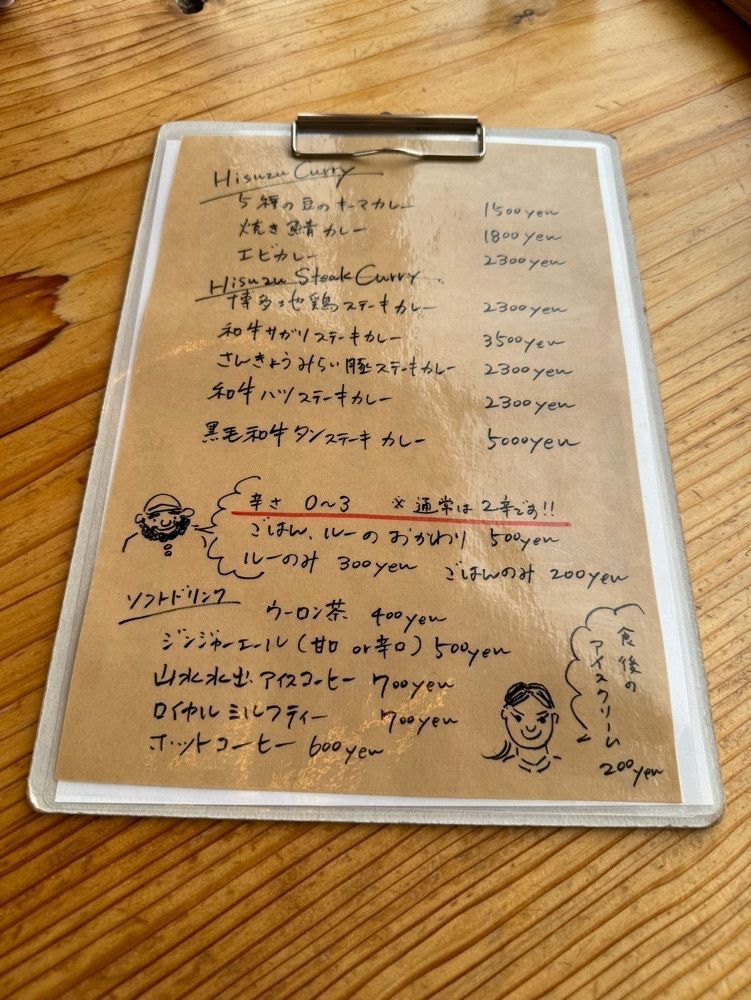 Hisuzu Curry
5種の豆のキーマカレー 1500yen
焼き鯖カレー 1800yen
エビカレー 2300yen
Hisuzu Steak Curry
博多地鶏ステーキカレー 2300yen
和牛サガリステーキカレー 3500yen
さんきょうみらい豚ステーキカレー 2300yen
和牛ハツステーキカレー 2300yen
黒毛和牛タンステーキカレー 5000yen
辛さ 0〜3 ※通常は2辛です!!
ごはん、ルーのおかわり 500yen
ルーのみ 300yen ごはんのみ 200yen
ソフトドリンク
ウーロン茶 400yen
ジンジャーエール(甘口 or 辛口) 500yen
山水水出アイスコーヒー 700yen
ロイヤルミルクティー 700yen
ホットコーヒー 600yen
食後の
アイスクリーム
200yen